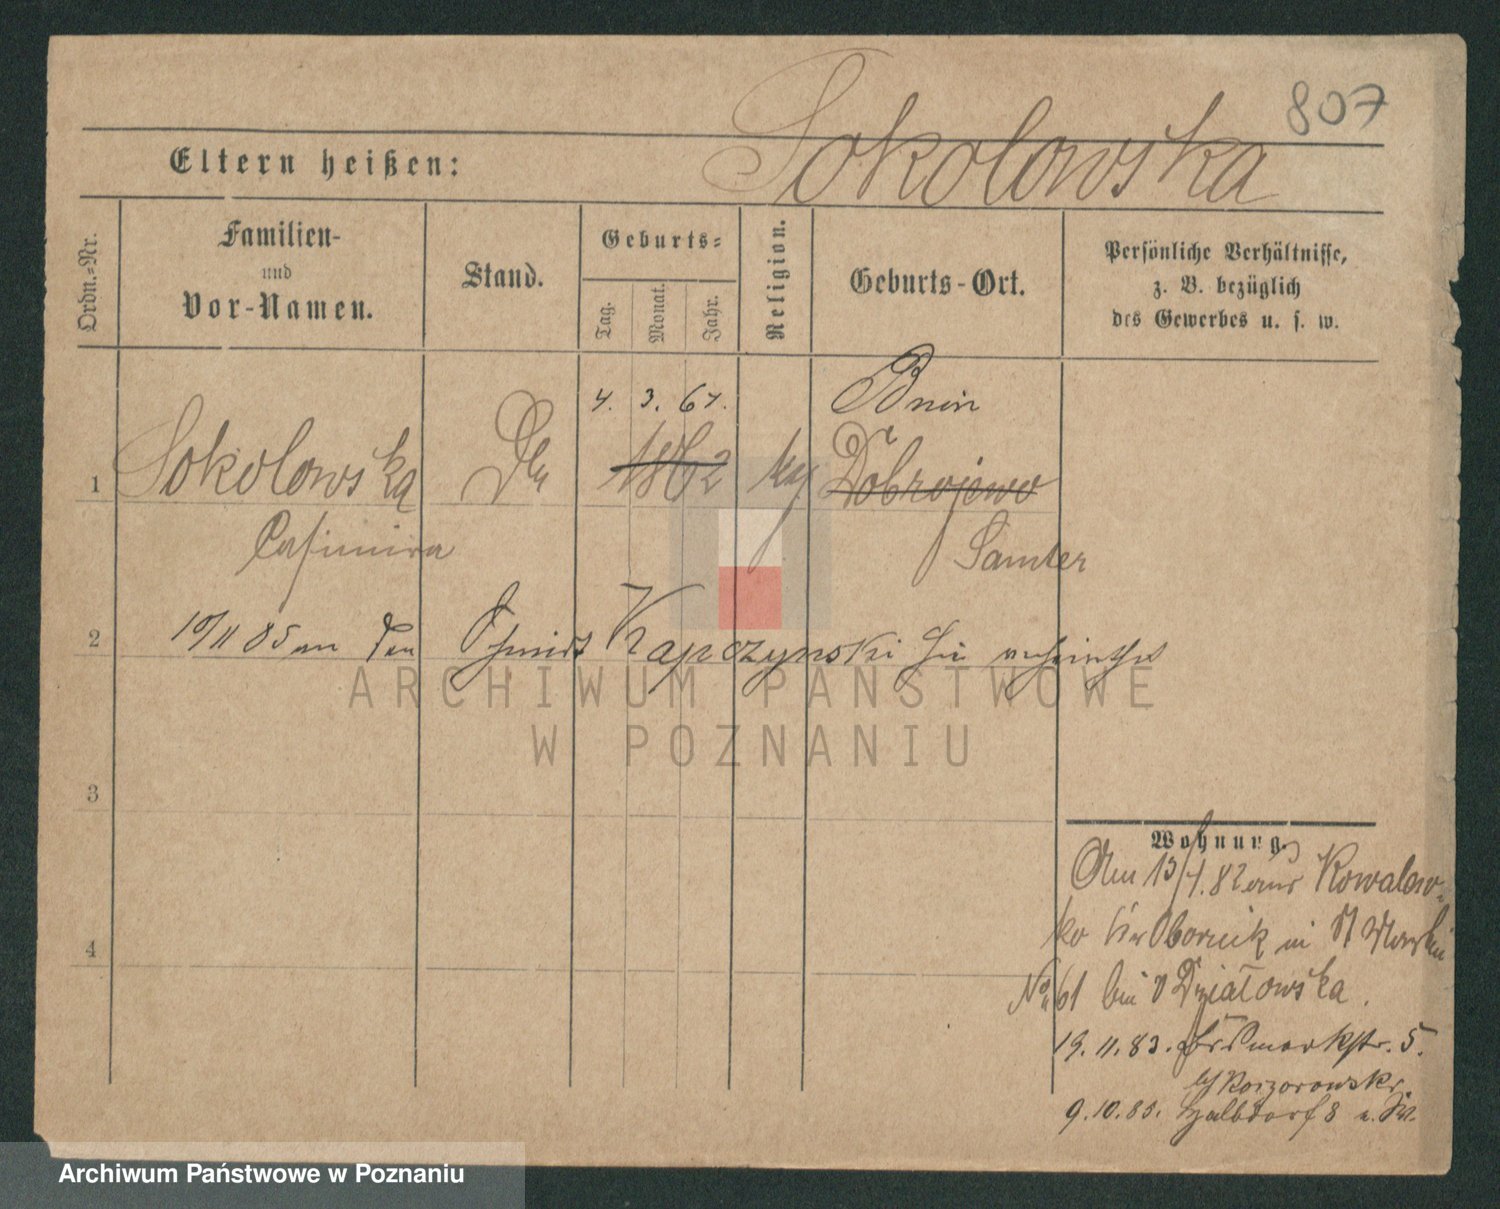 807
Sokolowska
Eltern heißen:
Ordn.-Nr.
Familien-
und
Vor-Namen.
Stand.
Geburts-
Tag.
Monat.
Jahr.
Religion.
Geburts-Ort.
Persönliche Verhältnisse,
z. B. bezüglich
des Gewerbes u. s. w.
4. 3. 61. Bnin
1 Sokolowska 1862 Dobrojewo
Casimira Samter
2 10/11 85 an den Schmidt Kapczynski hie verheirathet
ARCHIWUM PAŃSTWOWE
W POZNANIU
3
4
Wohnung.
Am 13/1. 82 aus Kowalew-
ko Kr Obornik in St Martin
No 61 bei Dzialowska.
19. 11. 83. 5.
9. 10. 85. Halbdorf 8
Archiwum Państwowe w Poznaniu